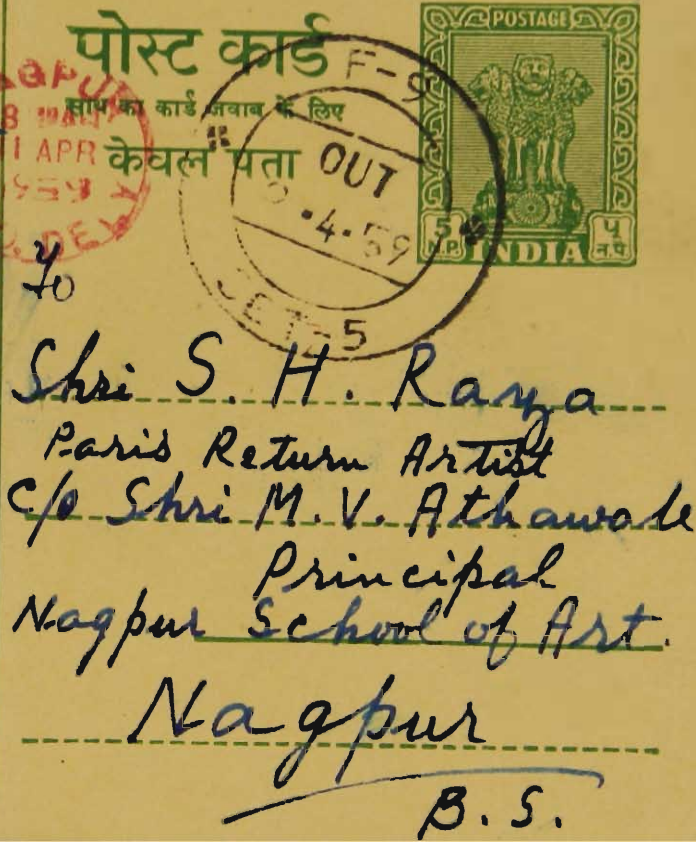 पोस्ट कार्ड
साथ का कार्ड जवाब के लिए
केवल पता
POSTAGE
5 N.P. INDIA ५ न.पै.
F-9
OUT
-4-59
JET-5
AGPU
8
1 APR
DEL
To
Shri S. H. Raza
Paris Return Artist
c/o Shri M. V. Athawale
Principal
Nagpur School of Art.
Nagpur
B. S.